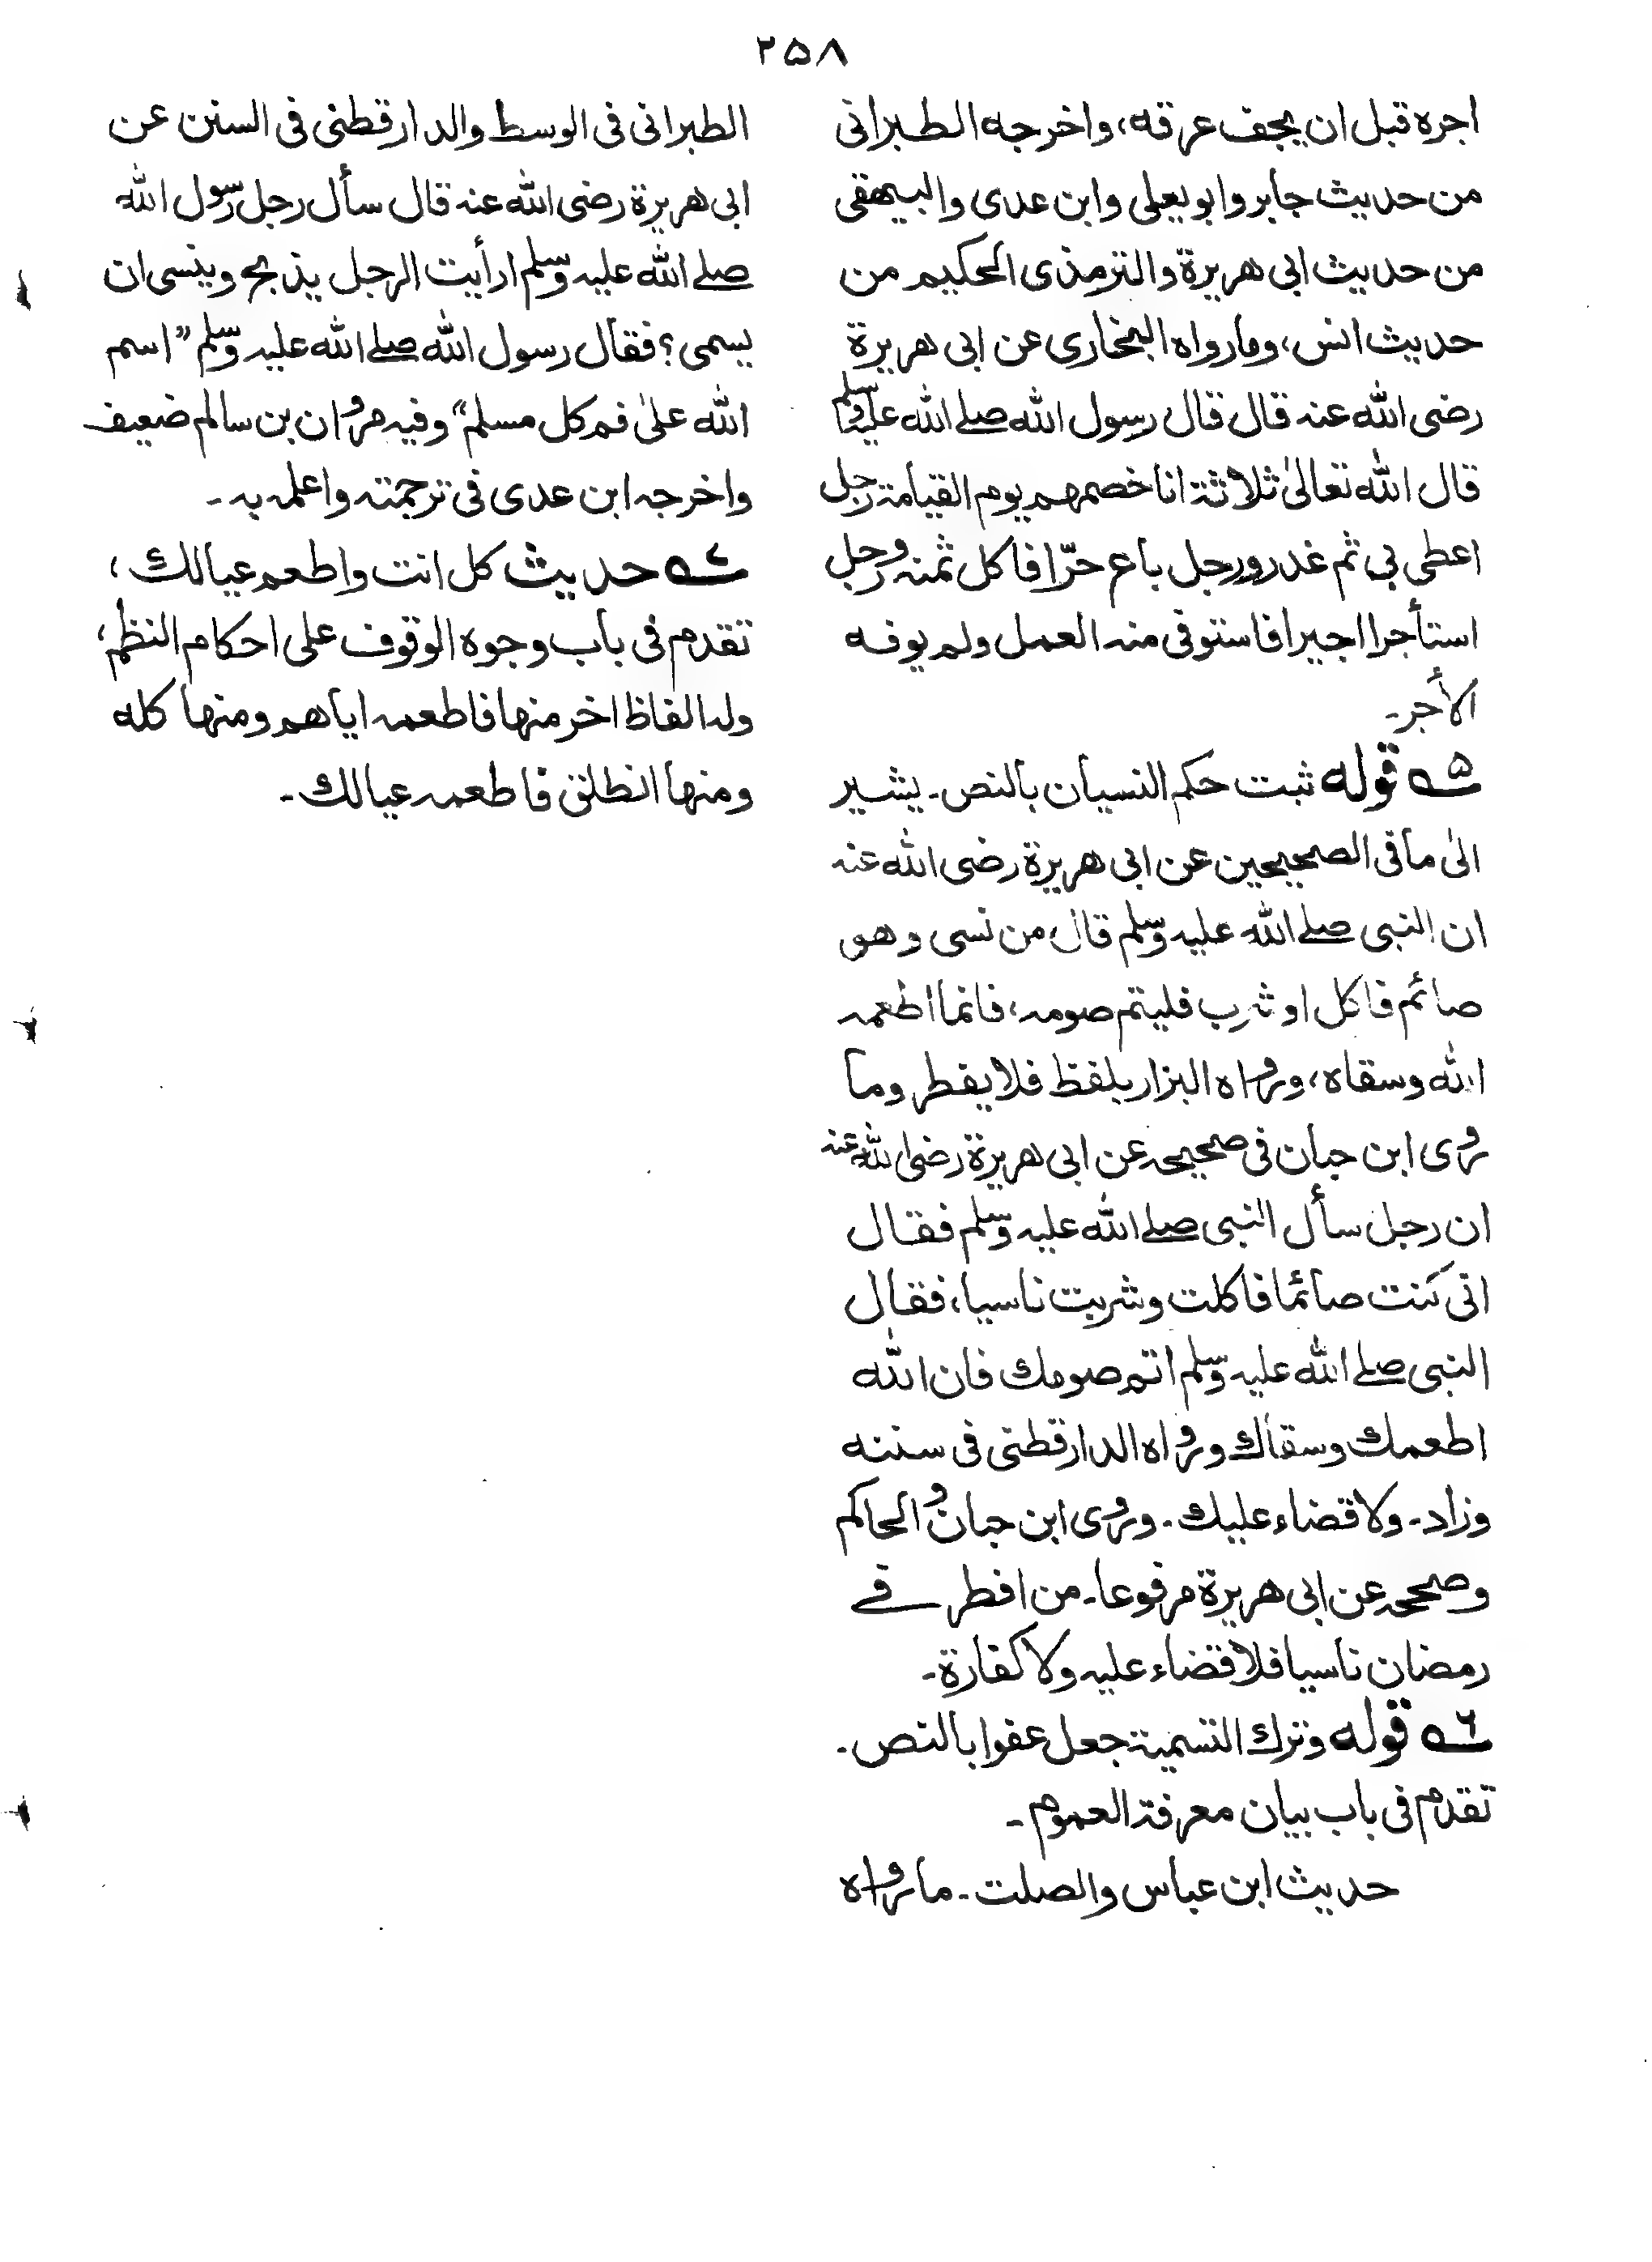 ۲۵۸
اجره قبل ان يجف عرقه، واخرجه الطبرانى
من حديث جابر وابو يعلى وابن عدى والبيهقى
من حديث ابى هريرة والترمذى الحكيم من
حديث انس، وما رواه البخارى عن ابى هريرة
رضى الله عنه قال قال رسول الله صلے الله عليه وسلم
قال الله تعالىٰ ثلاثة انا خصمهم يوم القيامة رجل
اعطى بى ثم غدر ورجل باع حرّا فاكل ثمنه ورجل
استأجر اجيرا فاستوفى منه العمل ولم يوفه
الأجر۔
۵ قوله ثبت حكم النسيان بالنص۔ يشير
الىٰ ما فى الصحيحين عن ابى هريرة رضى الله عنه
ان النبى صلے الله عليه وسلم قال من نسى وهو
صائم فاكل او شرب فليتم صومه، فانما اطعمه
الله وسقاه، ورواه البزار بلفظ فلا يفطر وما
روى ابن حبان فى صحيحه عن ابى هريرة رضى الله عنه
ان رجل سأل النبى صلے الله عليه وسلم فقال
انى كنت صائما فاكلت وشربت ناسيا، فقال
النبى صلے الله عليه وسلم اتم صومك فان الله
اطعمك وسقاك ورواه الدارقطنى فى سننه
وزاد۔ ولا قضاء عليك۔ وروى ابن حبان والحاكم
وصححه عن ابى هريرة مرفوعا۔ من افطر فے
رمضان ناسيا فلا قضاء عليه ولا كفارة۔
۶ قوله وترك التسمية جعل عفوا بالنص۔
تقدم فى باب بيان معرفة العموم۔
حديث ابن عباس والصلت۔ ما رواه
الطبرانى فى الوسط والدارقطنى فى السنن عن
ابى هريرة رضى الله عنه قال سأل رجل رسول الله
صلے الله عليه وسلم ارأيت الرجل يذبح وينسى ان
يسمى؟ فقال رسول الله صلے الله عليه وسلم "اسم
الله علىٰ فم كل مسلم" وفيه مروان بن سالم ضعيف
واخرجه ابن عدى فى ترجمته واعلمه به۔
۷ حديث كل انت واطعم عيالك،
تقدم فى باب وجوه الوقوف على احكام النظم،
وله الفاظ اخر منها فاطعمه اياهم ومنها كله
ومنها انطلق فاطعمه عيالك۔